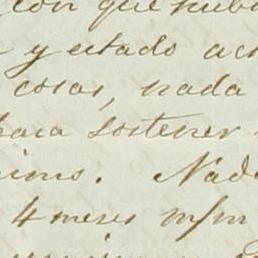 con que hub
y estado act
cosas, nada
para sostener
Nad
4 meses m/m